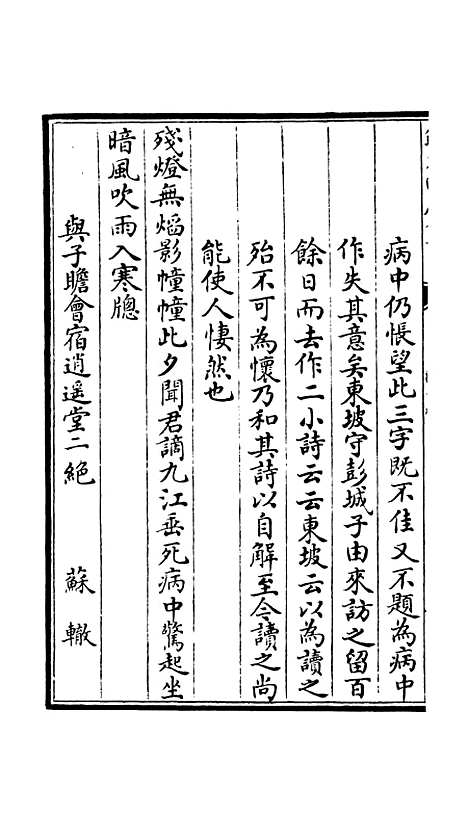 病中仍悵望此三字既不佳又不題為病中
作失其意矣東坡守彭城子由來訪之留百
餘日而去作二小詩云云東坡云以為讀之
殆不可為懷乃和其詩以自解至今讀之尚
能使人悽然也
殘燈無熖影幢幢此夕聞君謫九江垂死病中驚起坐
暗風吹雨入寒牕
與子瞻會宿逍遥堂二絕 蘇轍